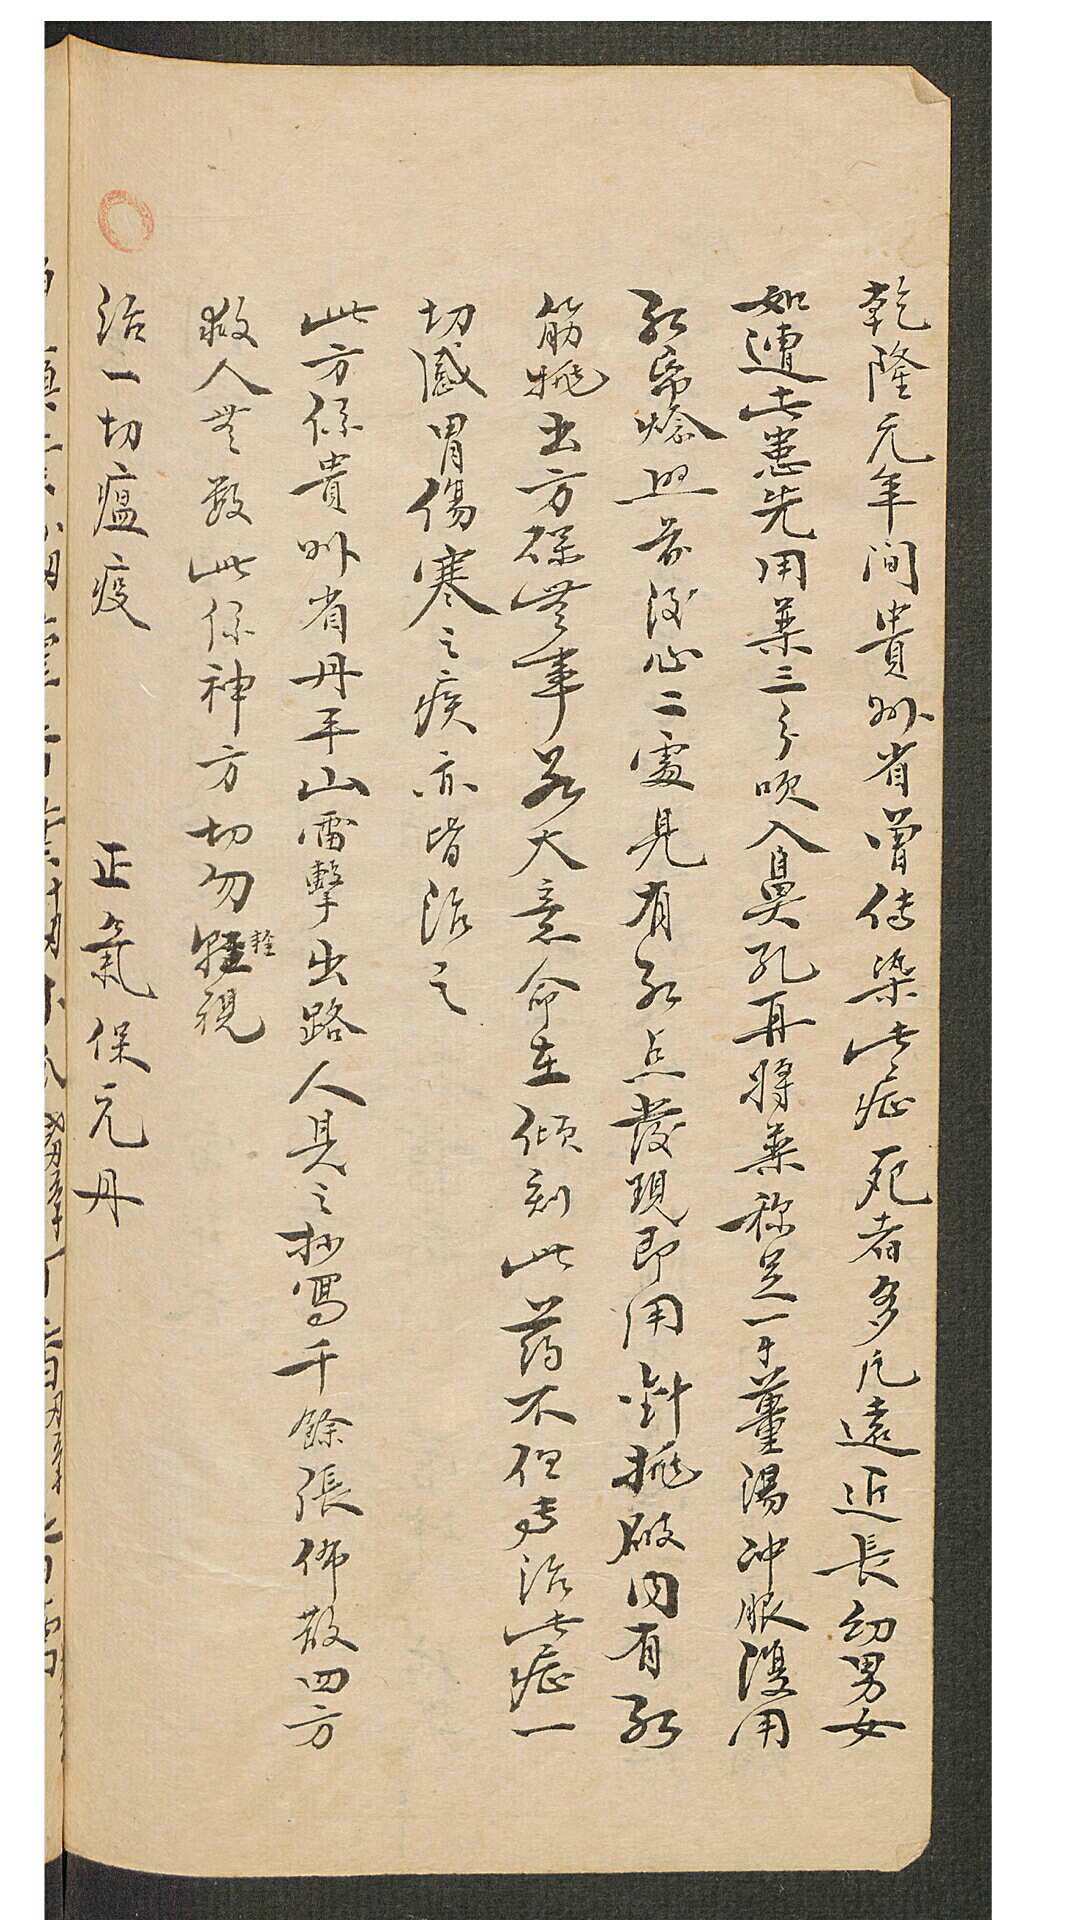 乾隆元年間貴州省曽傳染此症死者多凡遠近長幼男女
如遭此患先用藥三分吹入鼻孔再將藥称足一于薑湯冲服後用
紅帋焾照前後心二處見有紅点發現即用針挑破内有紅
筋挑出方保無事若大意命在傾刻此药不但專治此症一
切感冒傷寒之疾亦皆治之
此方係貴州省丹平山雷擊出路人見之抄寫千餘張佈散四方
救人無数此係神方切勿軽視
軽
治一切瘟疫 正氣保元丹